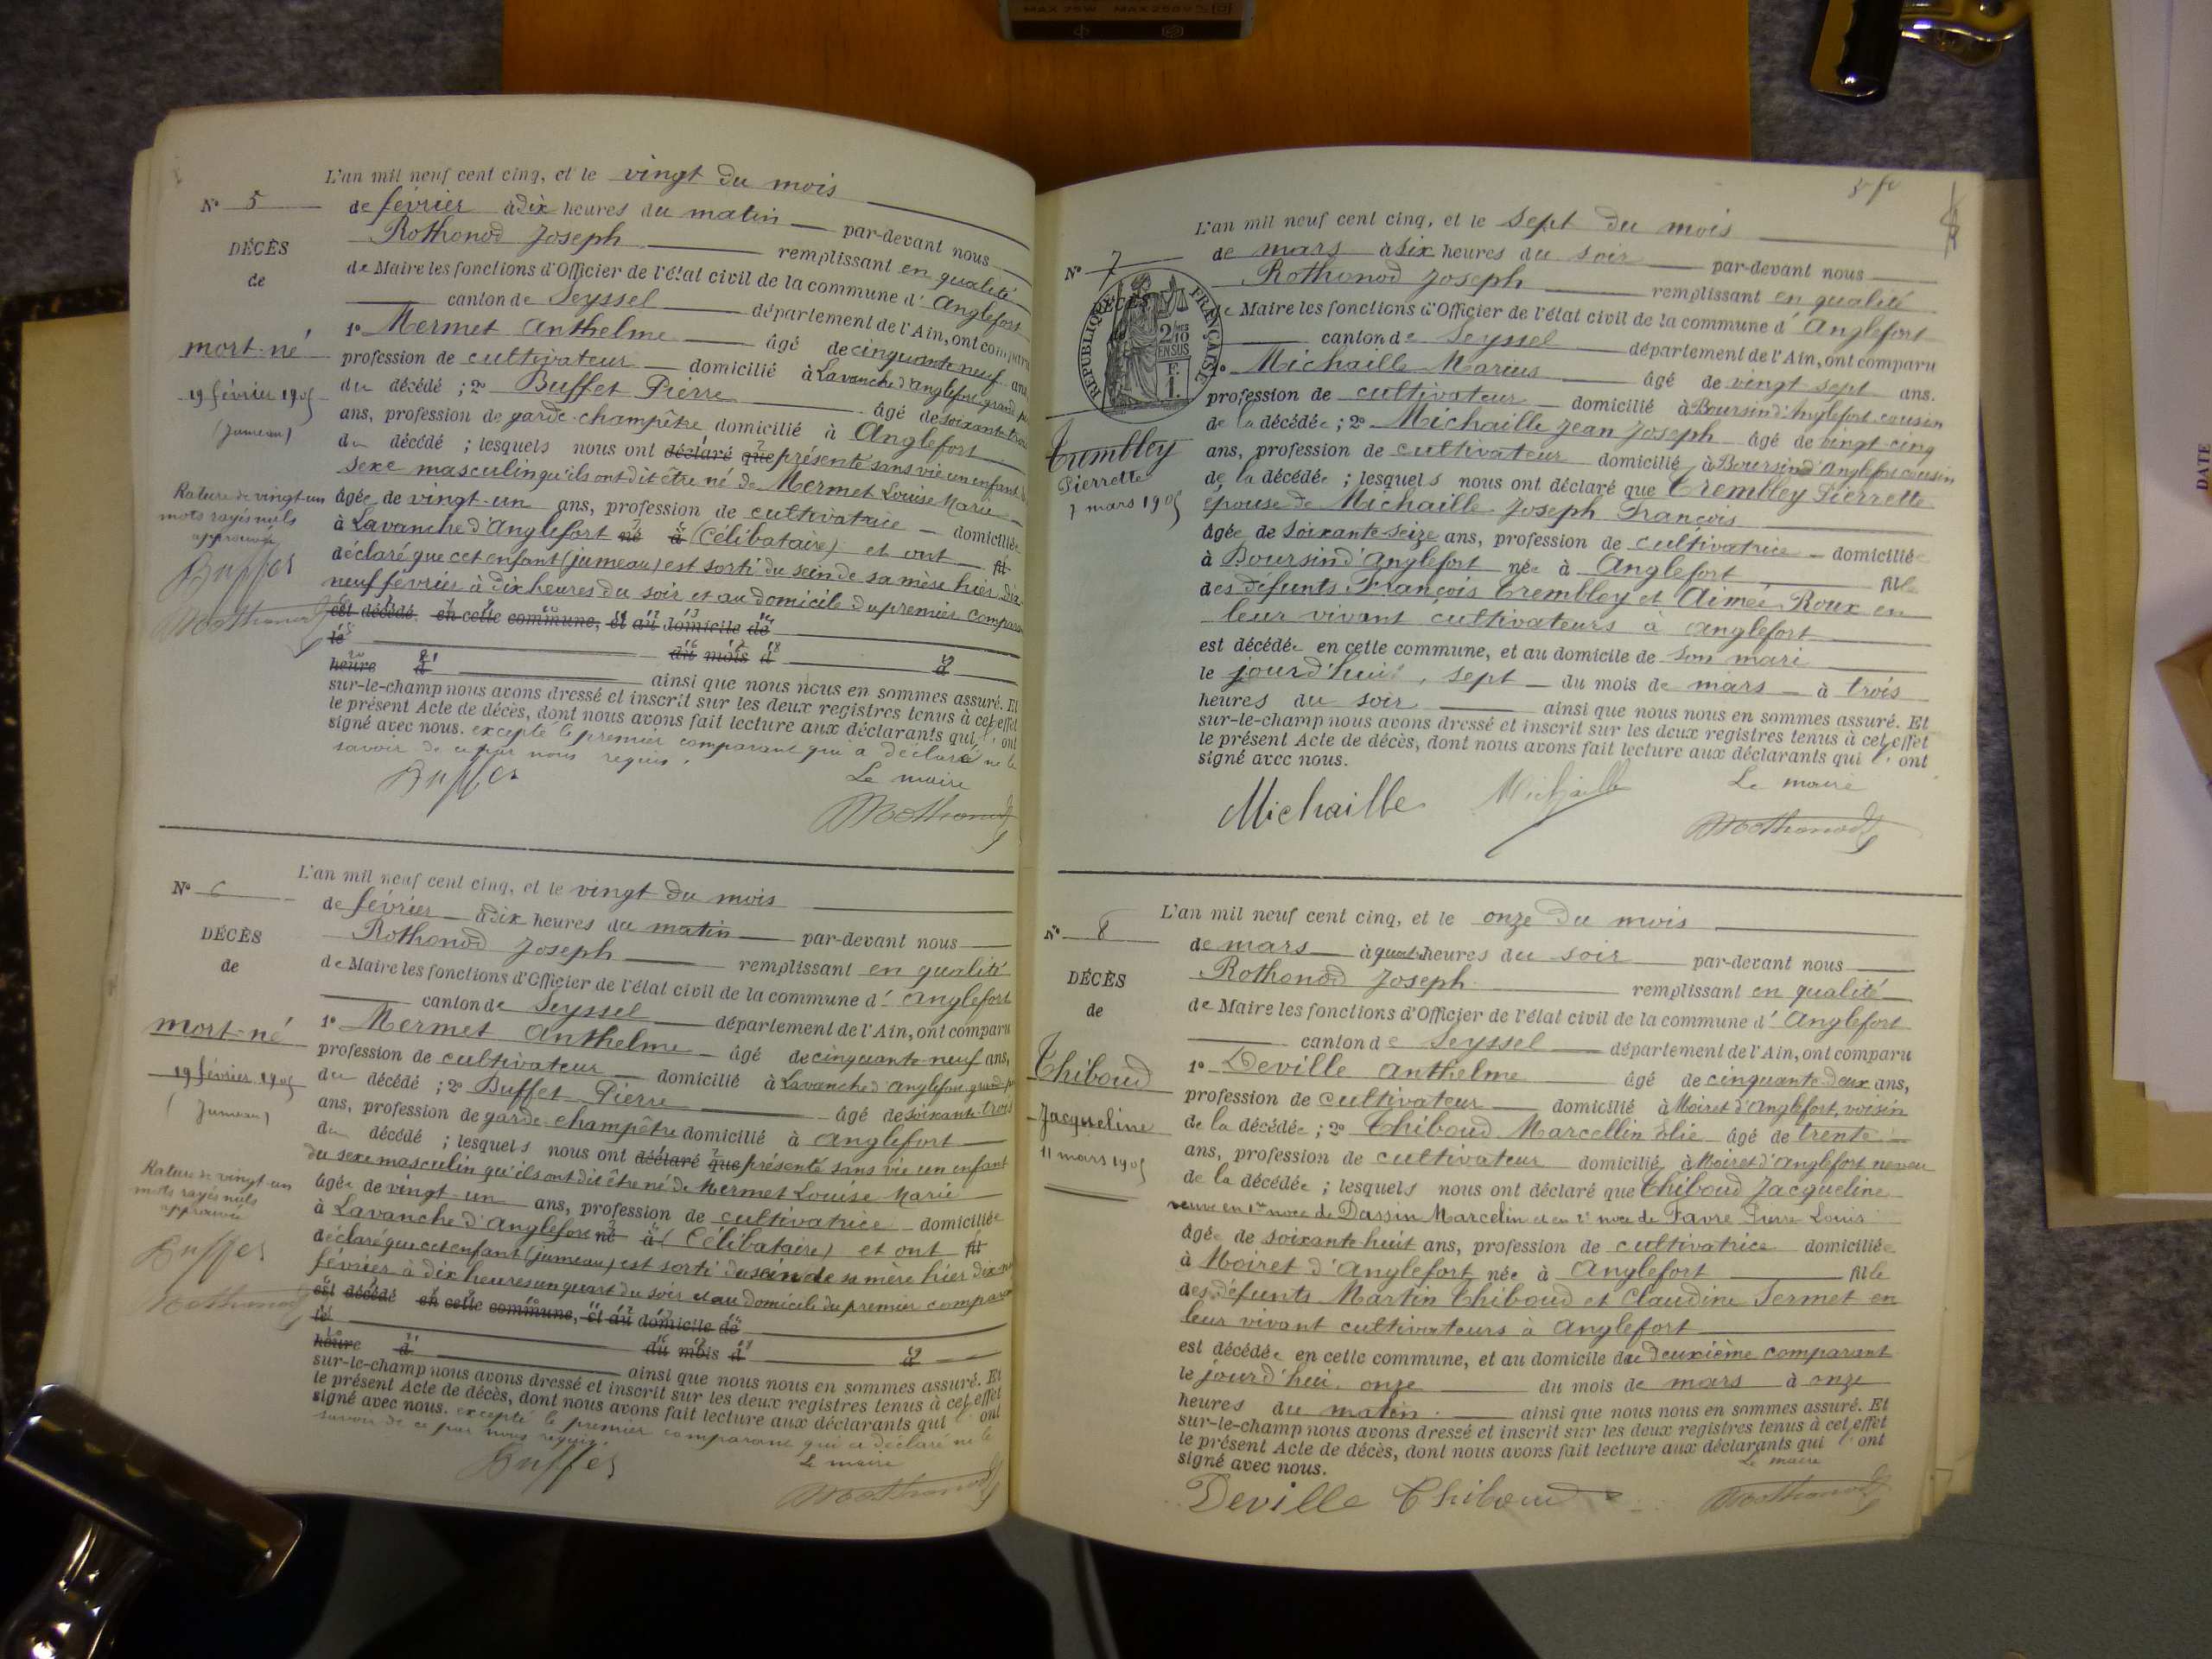 MAX 75W MAX 250V
L'an mil neuf cent cinq, et le vingt du mois
N° 5
de février à dix heures du matin par-devant nous
Rothonod Joseph remplissant en qualité
DÉCÈS
de Maire les fonctions d'Officier de l'état civil de la commune d' Anglefort
de
canton de Seyssel département de l'Ain, ont comparu
1° Mermet Anthelme âgé de cinquante neuf ans
mort-né
profession de cultivateur domicilié à Lavanche d'Anglefort grand
19 février 1905
du décédé ; 2° Buffet Pierre âgé de soixante-trois
(Jumeau)
ans, profession de garde-champêtre domicilié à Anglefort
du décédé ; lesquels nous ont déclaré que présenté sans vie un enfant
sexe masculin qu'ils ont dit être né de Mermet Louise Marie
Rature de vingt-un
mots rayés nuls
approuvée
Buffet
Rothonod
âgée de vingt-un ans, profession de cultivatrice domiciliée
à Lavanche d'Anglefort né à (Célibataire) et ont fil
déclaré que cet enfant (jumeau) est sorti du sein de sa mère hier dix
neuf février à dix heures du soir et au domicile du premier comparant
est décédé en cette commune, et au domicile de
le du mois d
heure d à
ainsi que nous nous en sommes assuré. Et
sur-le-champ nous avons dressé et inscrit sur les deux registres tenus à cet effet
le présent Acte de décès, dont nous avons fait lecture aux déclarants qui l' ont
signé avec nous. excepté le premier comparant qui a déclaré ne le
savoir de ce par nous requis.
Buffet
Le maire
Rothonod
L'an mil neuf cent cinq, et le vingt du mois
N° 6
de février à dix heures du matin par-devant nous
Rothonod Joseph remplissant en qualité
DÉCÈS
de Maire les fonctions d'Officier de l'état civil de la commune d' Anglefort
de
canton de Seyssel département de l'Ain, ont comparu
1° Mermet Anthelme âgé de cinquante-neuf ans,
mort-né
profession de cultivateur domicilié à Lavanche d'Anglefort grand
19 février 1905
du décédé ; 2° Buffet Pierre âgé de soixante-trois
(Jumeau)
ans, profession de garde champêtre domicilié à Anglefort
du décédé ; lesquels nous ont déclaré que présenté sans vie un enfant
du sexe masculin qu'ils ont dit être né de Mermet Louise Marie
Rature de vingt-un
mots rayés nuls
approuvée
Buffet
Rothonod
âgée de vingt-un ans, profession de cultivatrice domiciliée
à Lavanche d'Anglefort né à (Célibataire) et ont fil
déclaré que cet enfant (jumeau) est sorti du sein de sa mère hier
février à dix heures un quart du soir et au domicile du premier comparant
est décédé en cette commune, et au domicile de
le du mois d
heure d à
ainsi que nous nous en sommes assuré. Et
sur-le-champ nous avons dressé et inscrit sur les deux registres tenus à cet effet
le présent Acte de décès, dont nous avons fait lecture aux déclarants qui l' ont
signé avec nous. excepté le premier comparant qui a déclaré ne le
savoir de ce par nous requis.
Buffet
Le maire
Rothonod
L'an mil neuf cent cinq, et le sept du mois
N° 7
de mars à six heures du soir par-devant nous
Rothonod Joseph remplissant en qualité
DÉCÈS
RÉPUBLIQUE FRANÇAISE
2/10 EN SUS
F. 1.
de Maire les fonctions d'Officier de l'état civil de la commune d' Anglefort
canton de Seyssel département de l'Ain, ont comparu
1° Michaille Marius âgé de vingt-sept ans.
profession de cultivateur domicilié à Boursin d'Anglefort cousin
de la décédée ; 2° Michaille Jean Joseph âgé de vingt-cinq
Trembley
Pierrette
7 mars 1905
ans, profession de cultivateur domicilié à Boursin d'Anglefort cousin
de la décédée ; lesquels nous ont déclaré que Trembley Pierrette
épouse de Michaille Joseph François
âgée de soixante-seize ans, profession de cultivatrice domiciliée
à Boursin d'Anglefort née à Anglefort fille
des défunts François Trembley et Aimée Roux en
leur vivant cultivateurs à Anglefort
est décédée en cette commune, et au domicile de son mari
le jourd'hui, sept du mois de mars à trois
heures du soir ainsi que nous nous en sommes assuré. Et
sur-le-champ nous avons dressé et inscrit sur les deux registres tenus à cet effet
le présent Acte de décès, dont nous avons fait lecture aux déclarants qui l' ont
signé avec nous.
Le maire
Michaille Michaille
Rothonod
L'an mil neuf cent cinq, et le onze du mois
N° 8
de mars à quatre heures du soir par-devant nous
Rothonod Joseph remplissant en qualité
DÉCÈS
de Maire les fonctions d'Officier de l'état civil de la commune d' Anglefort
de
canton de Seyssel département de l'Ain, ont comparu
1° Deville Anthelme âgé de cinquante-deux ans,
Thiboud
Jacqueline
11 mars 1905
profession de cultivateur domicilié à Moiret d'Anglefort, voisin
de la décédée ; 2° Thiboud Marcellin Elie âgé de trente
ans, profession de cultivateur domicilié à Moiret d'Anglefort neveu
de la décédée ; lesquels nous ont déclaré que Thiboud Jacqueline
veuve en 1re noce de Dassin Marcelin et en 2e noce de Favre Pierre Louis
âgée de soixante-huit ans, profession de cultivatrice domiciliée
à Moiret d'Anglefort née à Anglefort fille
des défunts Martin Thiboud et Claudine Sermet en
leur vivant cultivateurs à Anglefort
est décédée en cette commune, et au domicile du deuxième comparant
le jourd'hui, onze du mois de mars à onze
heures du matin ainsi que nous nous en sommes assuré. Et
sur-le-champ nous avons dressé et inscrit sur les deux registres tenus à cet effet
le présent Acte de décès, dont nous avons fait lecture aux déclarants qui l' ont
signé avec nous.
Le maire
Deville Thiboud
Rothonod
DATE